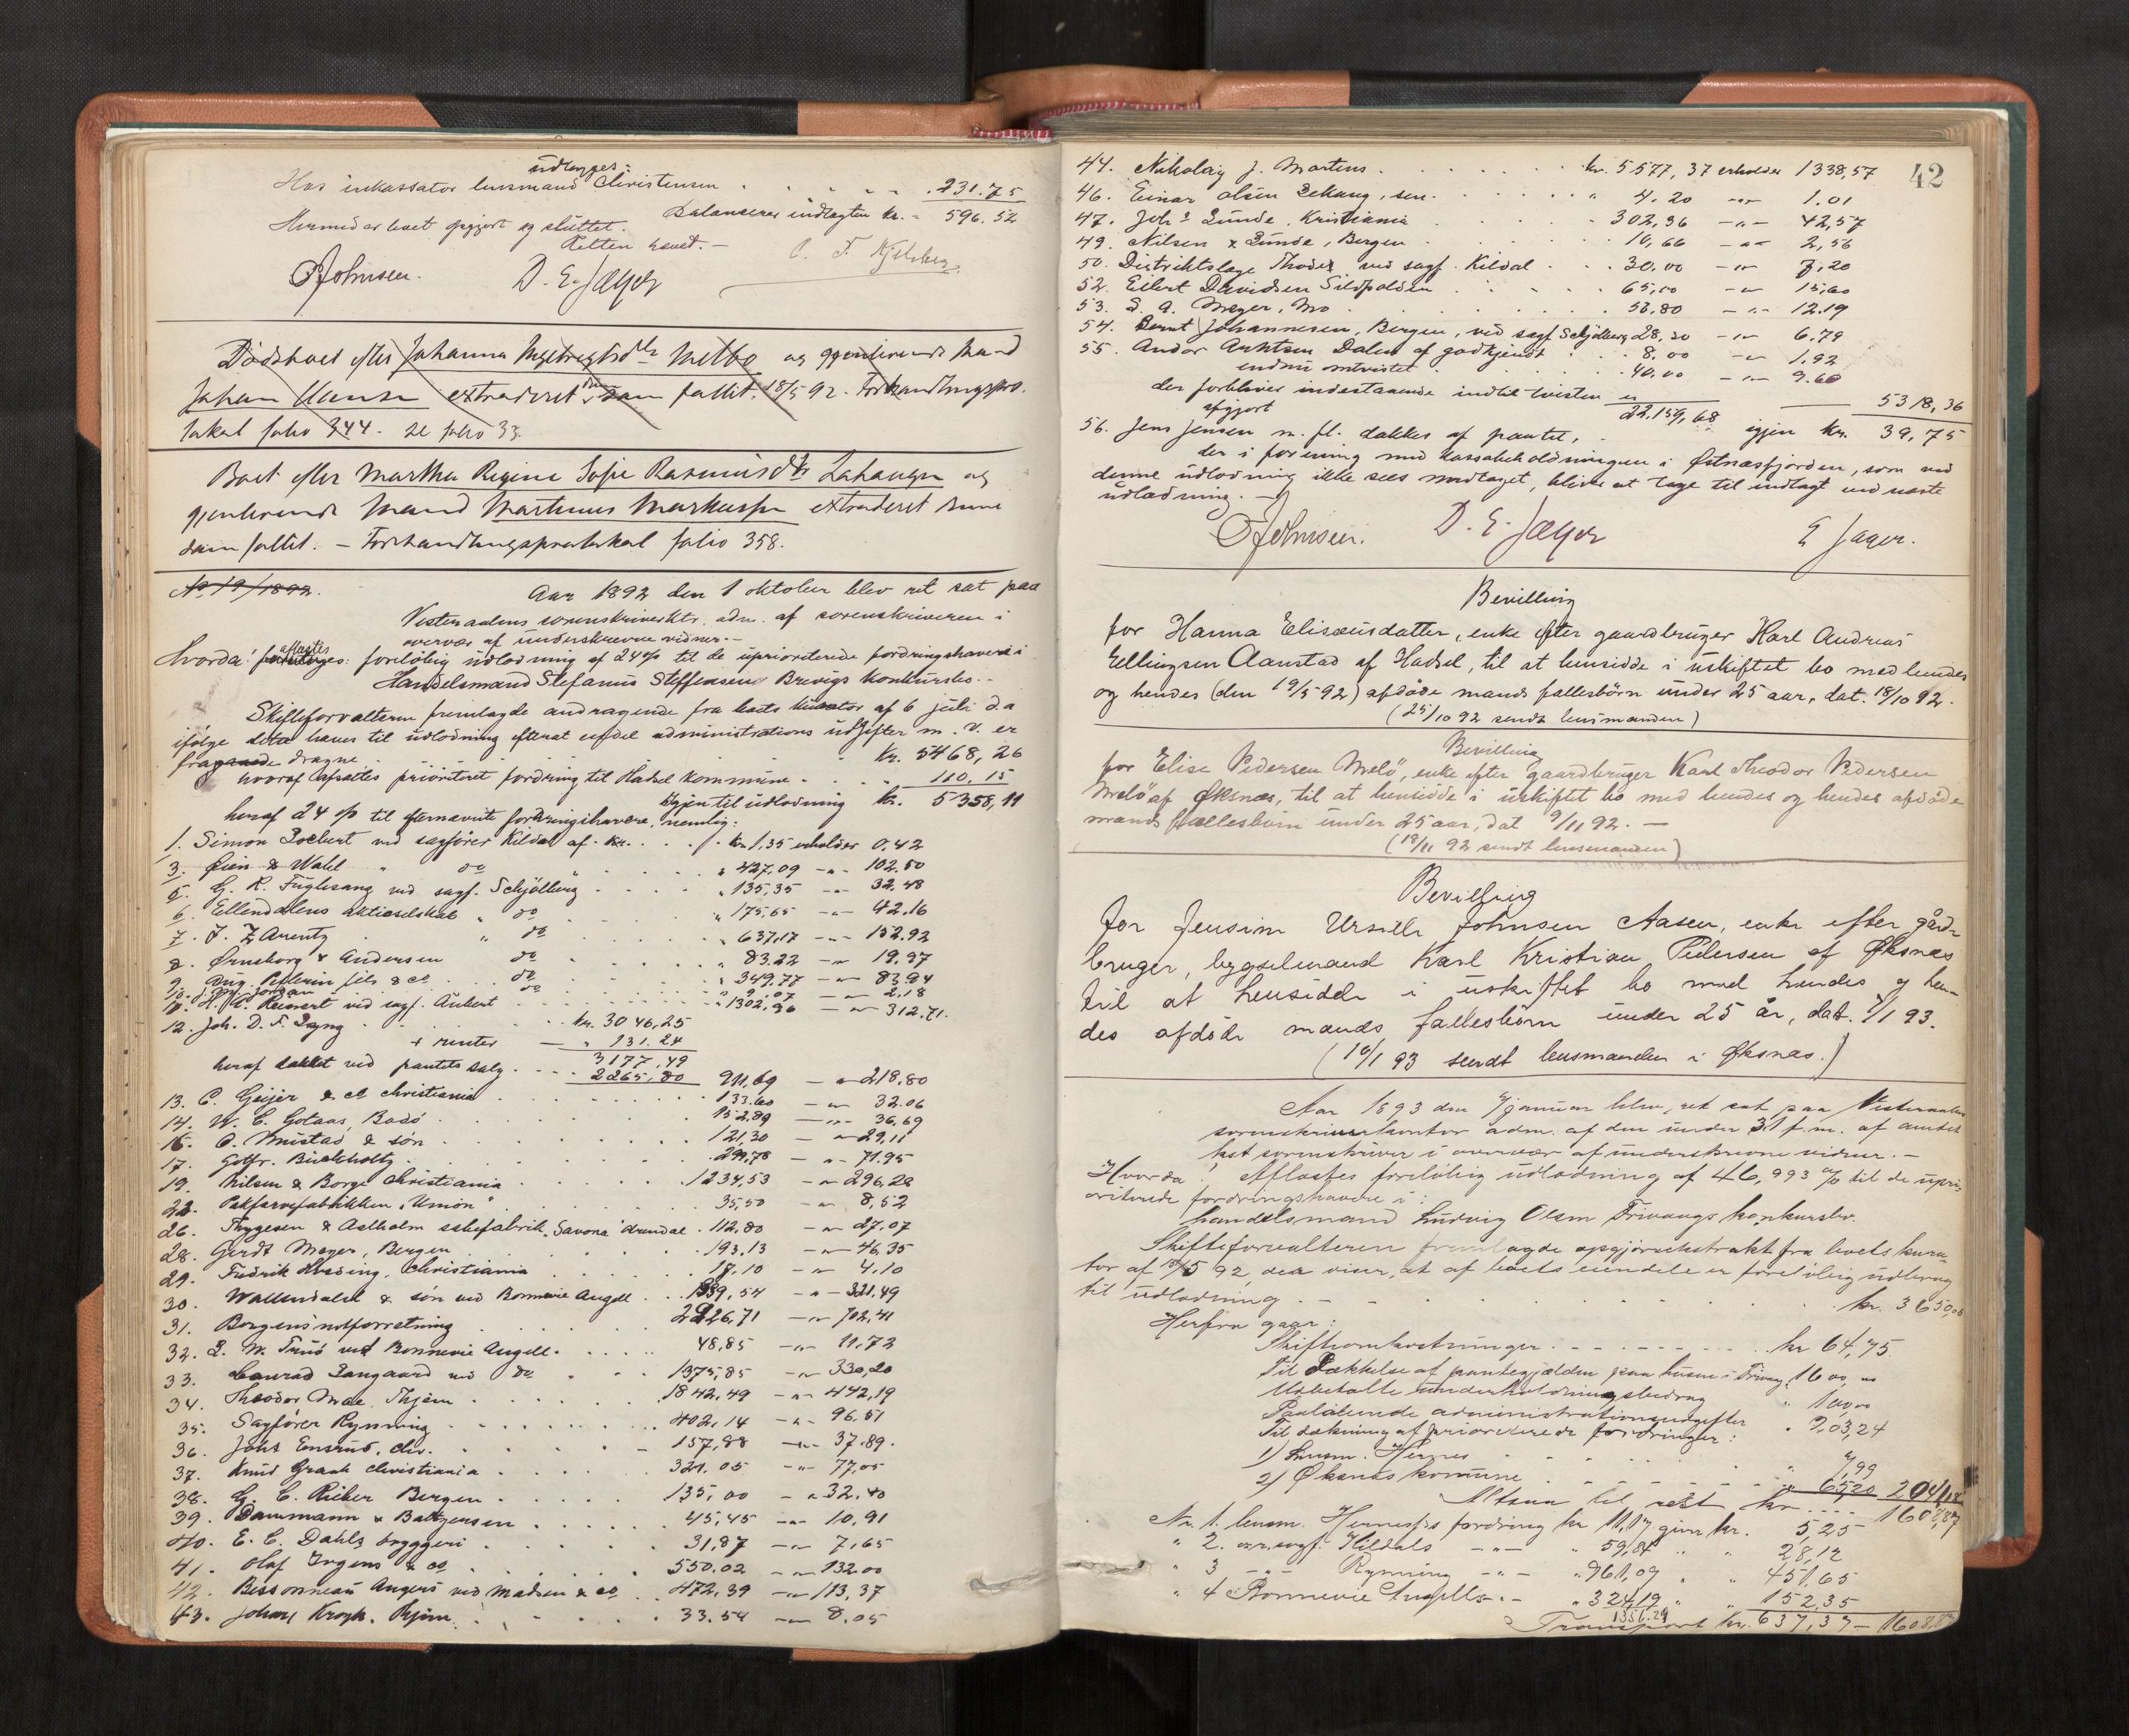 udlægges:
Hos inkassator lensmand Christensen . . . . . . 231.75
Balanserer indtægten kr. - 596.52
Hermed er boet opgjort og sluttet.
Retten hævet. -
OJohnsen. D. E. Jæger
Dødsboet efter Johanna Melbo og gjenlevende mand
Johan Hansen extraderet som fallit. 18/5 92. Forhandlingspro-
tokol folio 344. se folio 33
Boet efter Martha Regine Sofie Rasmusdtr og
gjenlevende mand Martinus Markussen extraderet
som fallit. - Forhandlingsprotokol folio 358.
No 19/1892.
Aar 1892 den 1 oktober blev ret sat paa
Vesteraalens sorenskriverktr. adm. af sorenskriveren i
overvær af underskrevne vidner. -
Hvorda: aflagtes foreløbig udlodning af 24 o/o til de uprioriterede fordringshavere i
Handelsmand Stefanus Steffensens Brevigs konkursbo. -
Skifteforvalteren fremlagde andragende fra boets kurator af 6 juli d.a
ifølge dette haves til udlodning efterat endel administrations udgifter m. v. er
fragaaede dragne . . . Kr. 5468,26
hvoraf afsattes prioriteret fordring til Hadsel kommune . . . 110.15
Igjen til udlodning kr. 5358,11
heraf 24 o/o til efternævnte fordringshavere, nemlig:
1. Simon ved sagfører Kildal af kr. . . . kr 1,35 erholder 0.42
3. Øien & Wahl " do . . . " 427,09 -"- 102.50
5. G. R. Fuglesang ved sagf. Schjølberg . . . " 135,35 -"- 32.48
6. Ellendalens aktieselskab " do . . . " 175,65 -"- 42.16
7. F. Z Arentz " do . . . " 637,17 -"- 152.92
8. Ørneborg & Andersen do . . . " 83.22 -"- 19.97
9. Aug. Pellerin fils & co do . . . " 349.77 -"- 83.94
do . . . " 9,07 -"- 2,18
H. C. Reinert ved sagf. Aubert . . . " 1302,96 -"- 312.71.
12. Joh. D. F. Lyng . . . kr. 3046,25
+ renter — " 131.24
3177,49
heraf dækket ved pantets salg . . . 2265.80 911,69 -"- 218,80
13. C. Geijer & co Christiania . . . 133.60 -"- 32.06
14. W. C. Gotaas, Bodø . . . 152.89 -"- 36,69
16. O. Mustad & søn . . . 121,30 -"- 29,11
17. Gotfr. Buchholtz . . . 299,78 -"- 71.95
19. Nilsen & Borge Christiania . . . 1234,53 -"- 296,28
22. Pakfarvefabrikken "Union" . . . 35,50 -"- 8,52
26. Thygesen & Astholm sæbefabrik "Savona" Arendal . 112,80 -"- 27.07
28. Gerdt Meyer, Bergen . . . 193,13 -"- 46,35
29. Fredrik Hvoding, Christiania . . . 17.10 -"- 4.10
30. Wallendahl & søn ved Bonnevie Angell . . . 1339,54 -"- 321,49
31. Bergens notforretning . . . 2926,71 -"- 702,41
32. L. W. Friis ved Bonnevie Angell . . . 48,85 -"- 11.72
33. Conrad Langaard ved do . . . 1375,85 -"- 330,20
34. Theodor Moe, Thjem . . . 1842,49 -"- 442,19
35. Sagfører Rynning . . . 402,14 -"- 96.51
36. Johs Ensrud, Chr. . . . 157,88 -"- 37.89.
37. Knud Graah Christiania . . . 321.05 -"- 77,05
38. G. C. Rieber Bergen . . . 135,00 -"- 32.40
39. Dammann & Baltzersen . . . 45,45 -"- 10,91
40. E. C. Dahls bryggeri . . . 31,87 -"- 7,65
41. Olaf Irgens & co . . . 550,02 -"- 132.00
42. Bessonneau Angers ved Madsen & co . . . 472,39 -"- 113,37
43. Johan Krogh, Thjem . . . 33.54 -"- 8.05
42
44. Nikolay J. Martens . . . kr. 5577,37 erholder 1338,57
46. Einar Olsen , sen. . . . " 4.20 -"- 1.01
47. Joh s Lunde Kristiania . . . 302,36 -"- 42,57
49. Nilsen & Lunde, Bergen . . . 10,66 -"- 2,56
50. Distriktslæge Thodes ved sagf. Kildal . . . 30.00 -"- 7,20
52. Eilert Davidsen Sildpolden . . . 65,00 -"- 15,60
53. S. A. Meyer, Mo . . . 50,80 -"- 12.19
54. Bernt Johannesen, Bergen, ved sagf. Schjølberg 28,30 -"- 6.79
55. Andor Arntsen Dalen af godkjendt . . . 8.00 -"- 1.92
endnu omtvistet . . . 40.00 -"- 9.60
der forbliver indestaaende indtil tvisten er
afgjort 22,159,68 — 5318,36
igjen kr. 39,75
56. Jens Jensen m. fl. dækkes af pantet,
der i forening med kassabeholdningen i Østnæsfjorden, som ved
denne udlodning ikke sees medtaget, bliver at tage til indtægt ved næste
udlodning. -
OJohnsen. D. E. Jæger E Jager.
Bevilling
for Hanna Elisæusdatter, enke efter gaardbruger Karl Andreas
Ellingsen Aanstad af Hadsel, til at hensidde i uskiftet bo med hendes
og hendes (den 19/5 92) afdøde mands fællesbørn under 25 aar, dat. 18/10 92.
(25/10 92 sendt lensmanden)
Bevilling
for Elise Pedersen Melø, enke efter gaardbruger Karl Theodor Pedersen
Melø af Øksnæs, til at hensidde i uskiftet bo med hendes og hendes afdøde
mands fællesbørn under 25 aar, dat 9/11 92. —
(18/11 92 sendt lensmanden)
Bevilling
for Jensine Ursille Johnsen Aasen, enke efter gård-
bruger, bygselmand Karl Kristian Pedersen af Øksnæs
til at hensidde i uskiftet bo med hendes og hen-
des afdøde mands fællesbørn under 25 år, dat. 7/1 93.
(10/1 93 sendt lensmanden i Øksnæs.)
Aar 1893 den 7 januar blev ret sat paa Vesteraalens
sorenskriverkontor adm. af den under 31 f.m. af amtet
kst sorenskriver i overvær af underskrevne vidner. -
Hvorda: Aflastes foreløbig udlodning af 46,993 o/o til de upri-
oriterede fordringshavere i:
handelsmand Ludvig Olsen Trivaags konkursbo.
Skifteforvalteren fremlagde opgjørsekstrakt fra boets kura-
tor af 18/5 92, der viser, at af boets eiendele er foreløbig udbragt
til udlodning . . . kr. 3650,
Herfra gaar:
Skifteomkostninger . . . kr 64,75.
Til Dækkelse af pantegjælden paa husene i Trivaag " 1600,
Udbetalte underholdningsbidrag " 100,00
Paaløbende administrationsudgifter " 203,24
Til dækning af prioriterede fordringer:
1) Lensm. Hernes . . . " 7,99
2) Øksnæs komune . . . " 65,20
Altsaa til rest kr . . . 1608,87
Nr. 1. lensm. Hernes's fordring kr 11,17 giver kr. 5,25
" 2. sagf. Kildals -"- " 59,84 " " 28,12
" 3 -"- Rynning -"- " 961,09 " " 451,65
" 4 Bonnevie Angells -"- " 324,19 " " 152,35
1356.29
Transport kr. 637,37 - 1608,87